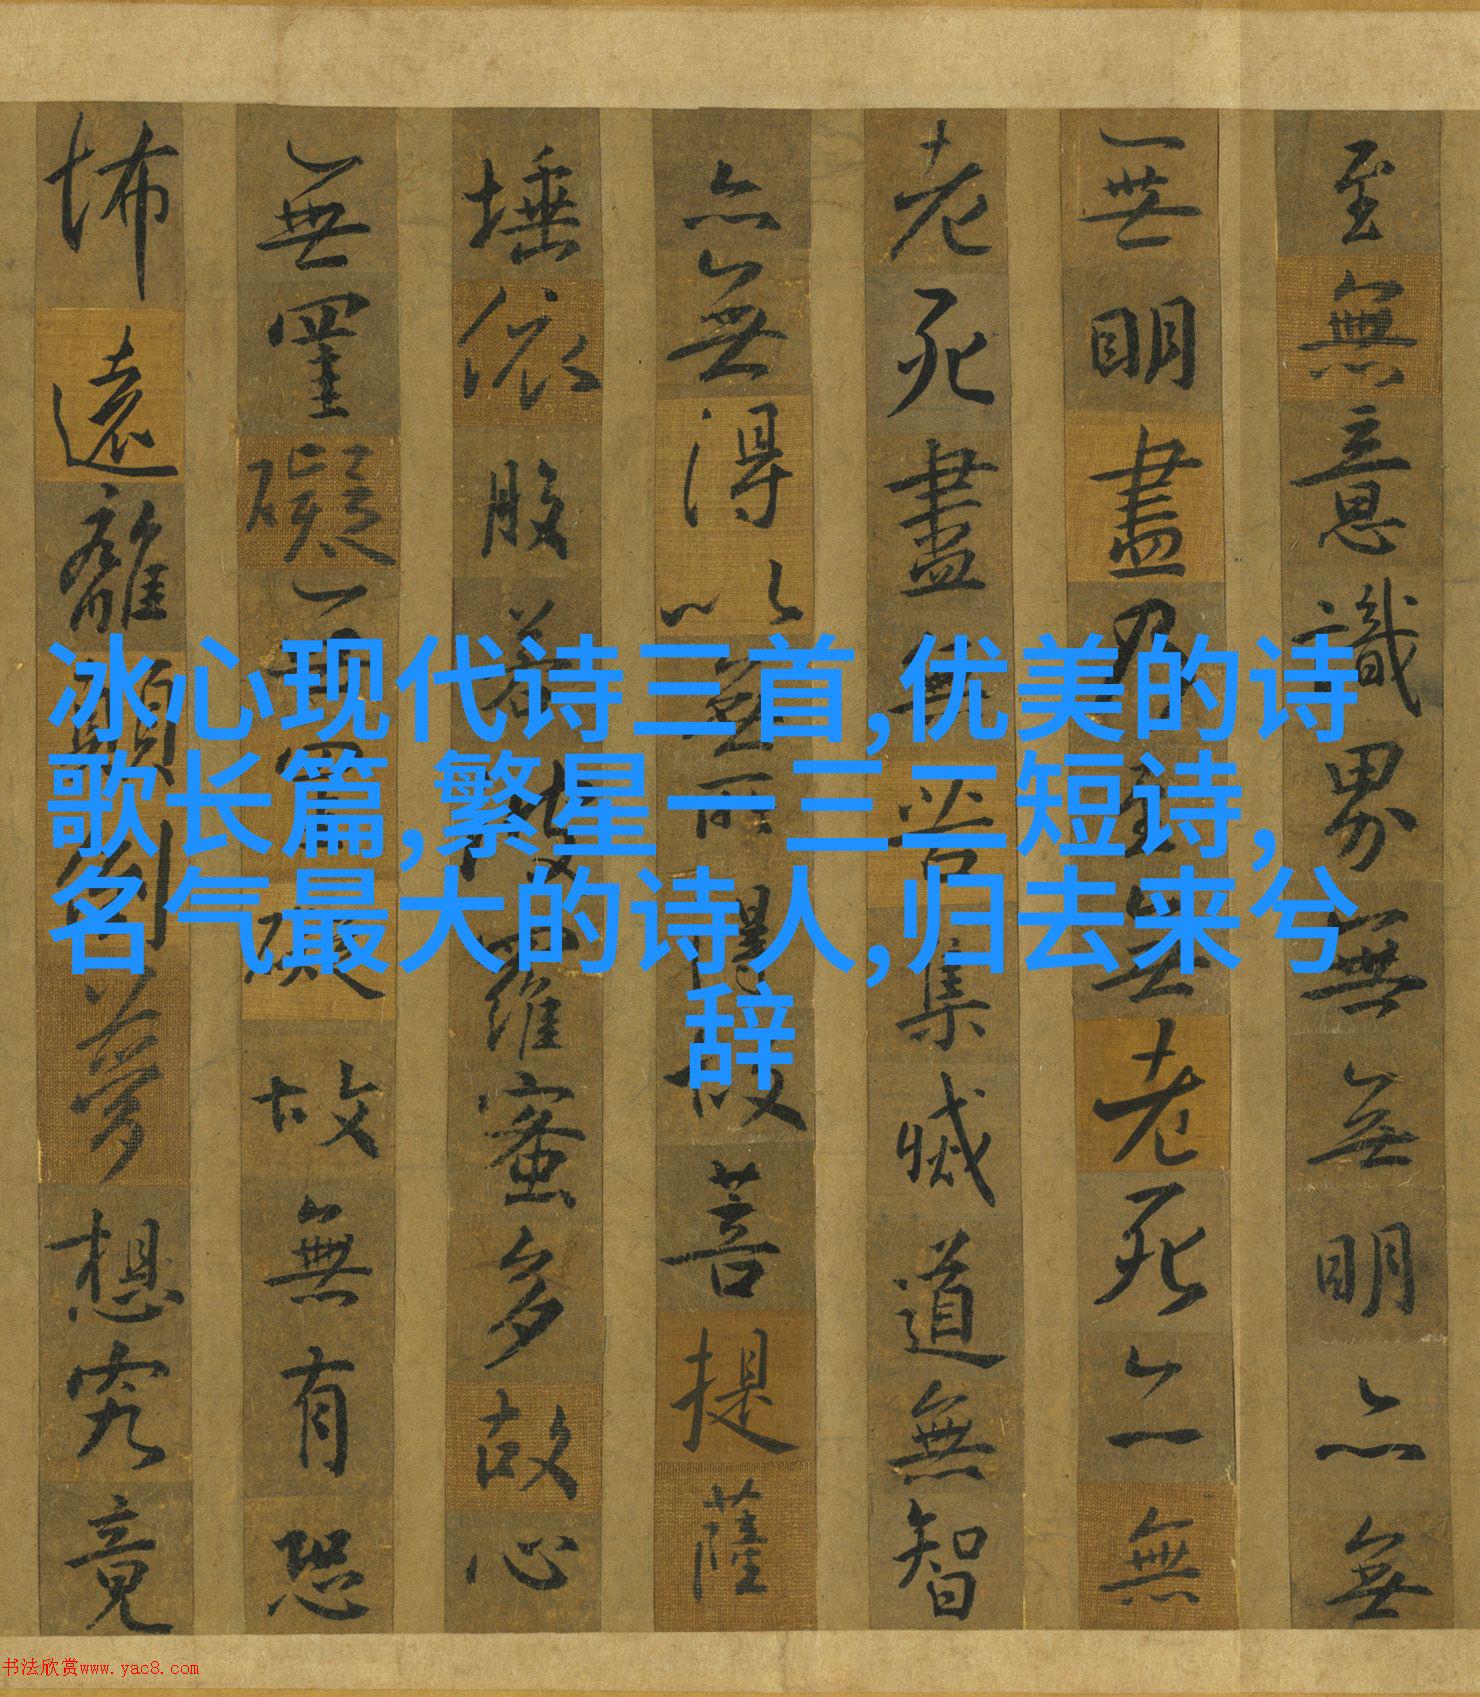 至無意識界無無明亦無
無明盡乃至無老死亦無
老死盡無苦集滅道無智
亦無得以無所得故菩提薩
埵依般若波羅蜜多故心
無罣礙無罣礙故無有恐
怖遠離顛倒夢想究竟
冰心现代诗三首,优美的诗
歌长篇,繁星一三二短诗,
名气最大的诗人,归去来兮
辞
书法欣赏www.yac8.com